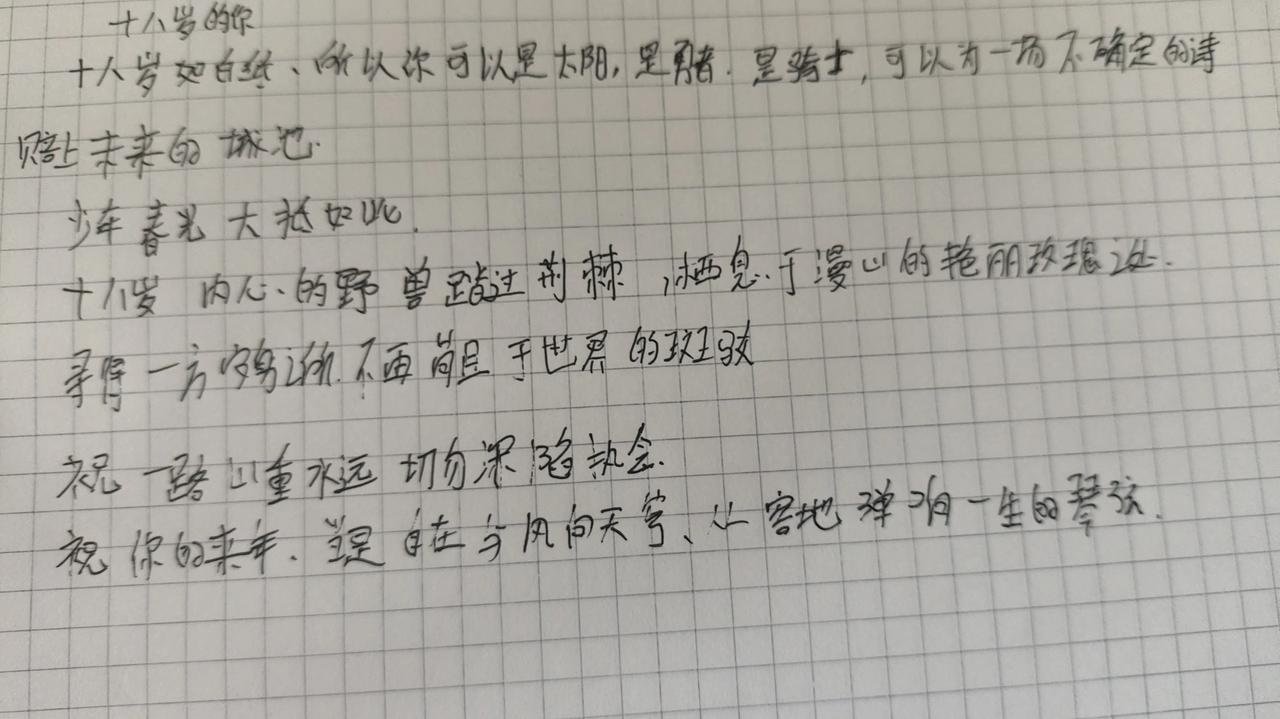 十八岁的你
十八岁如白纸、所以你可以是太阳，是勇者．是骑士，可以为一场不确定的诗
赔上未来的城池．
少年春光大抵如此．
十八岁 内心的野兽踏过荆棘，栖息于漫山的艳丽玫瑰边．
寻得一方 不再 于世界的斑驳
祝一路山重水远 切勿深陷执念．
祝你的来年、 是自在与风向天穹、 客地弹响一生的琴弦．